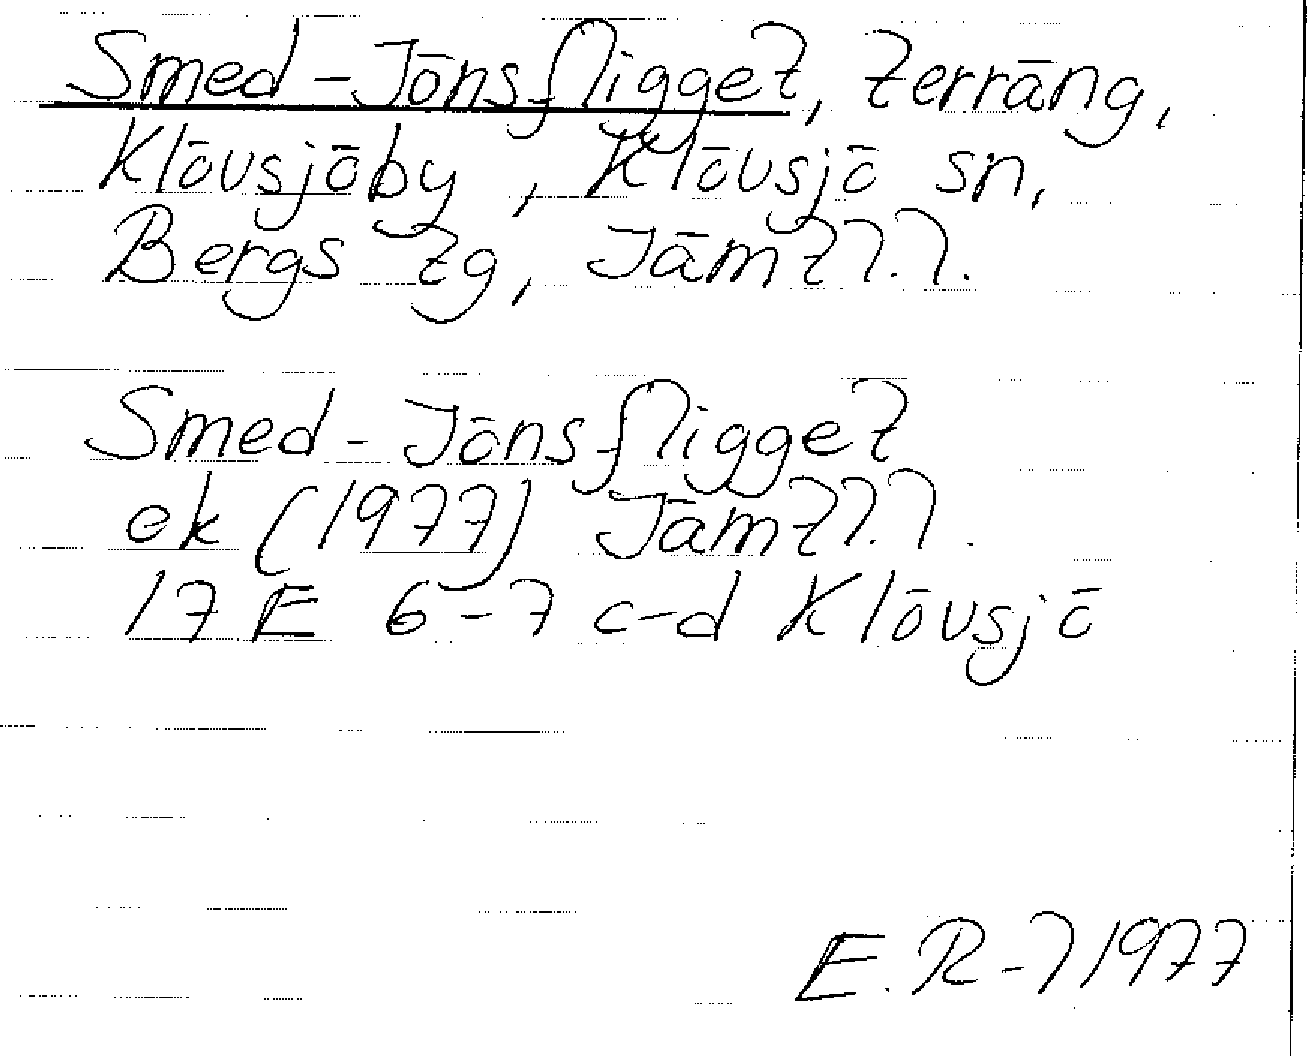 Smed-Jönsfligget, terräng,
Klövsjöby, Klövsjö sn,
Bergs tg, Jämtl.l.
Smed-Jönsfligget
ek (1977) Jämtl.l.
17 E 6-7 c-d Klövsjö
E.R-l 1977